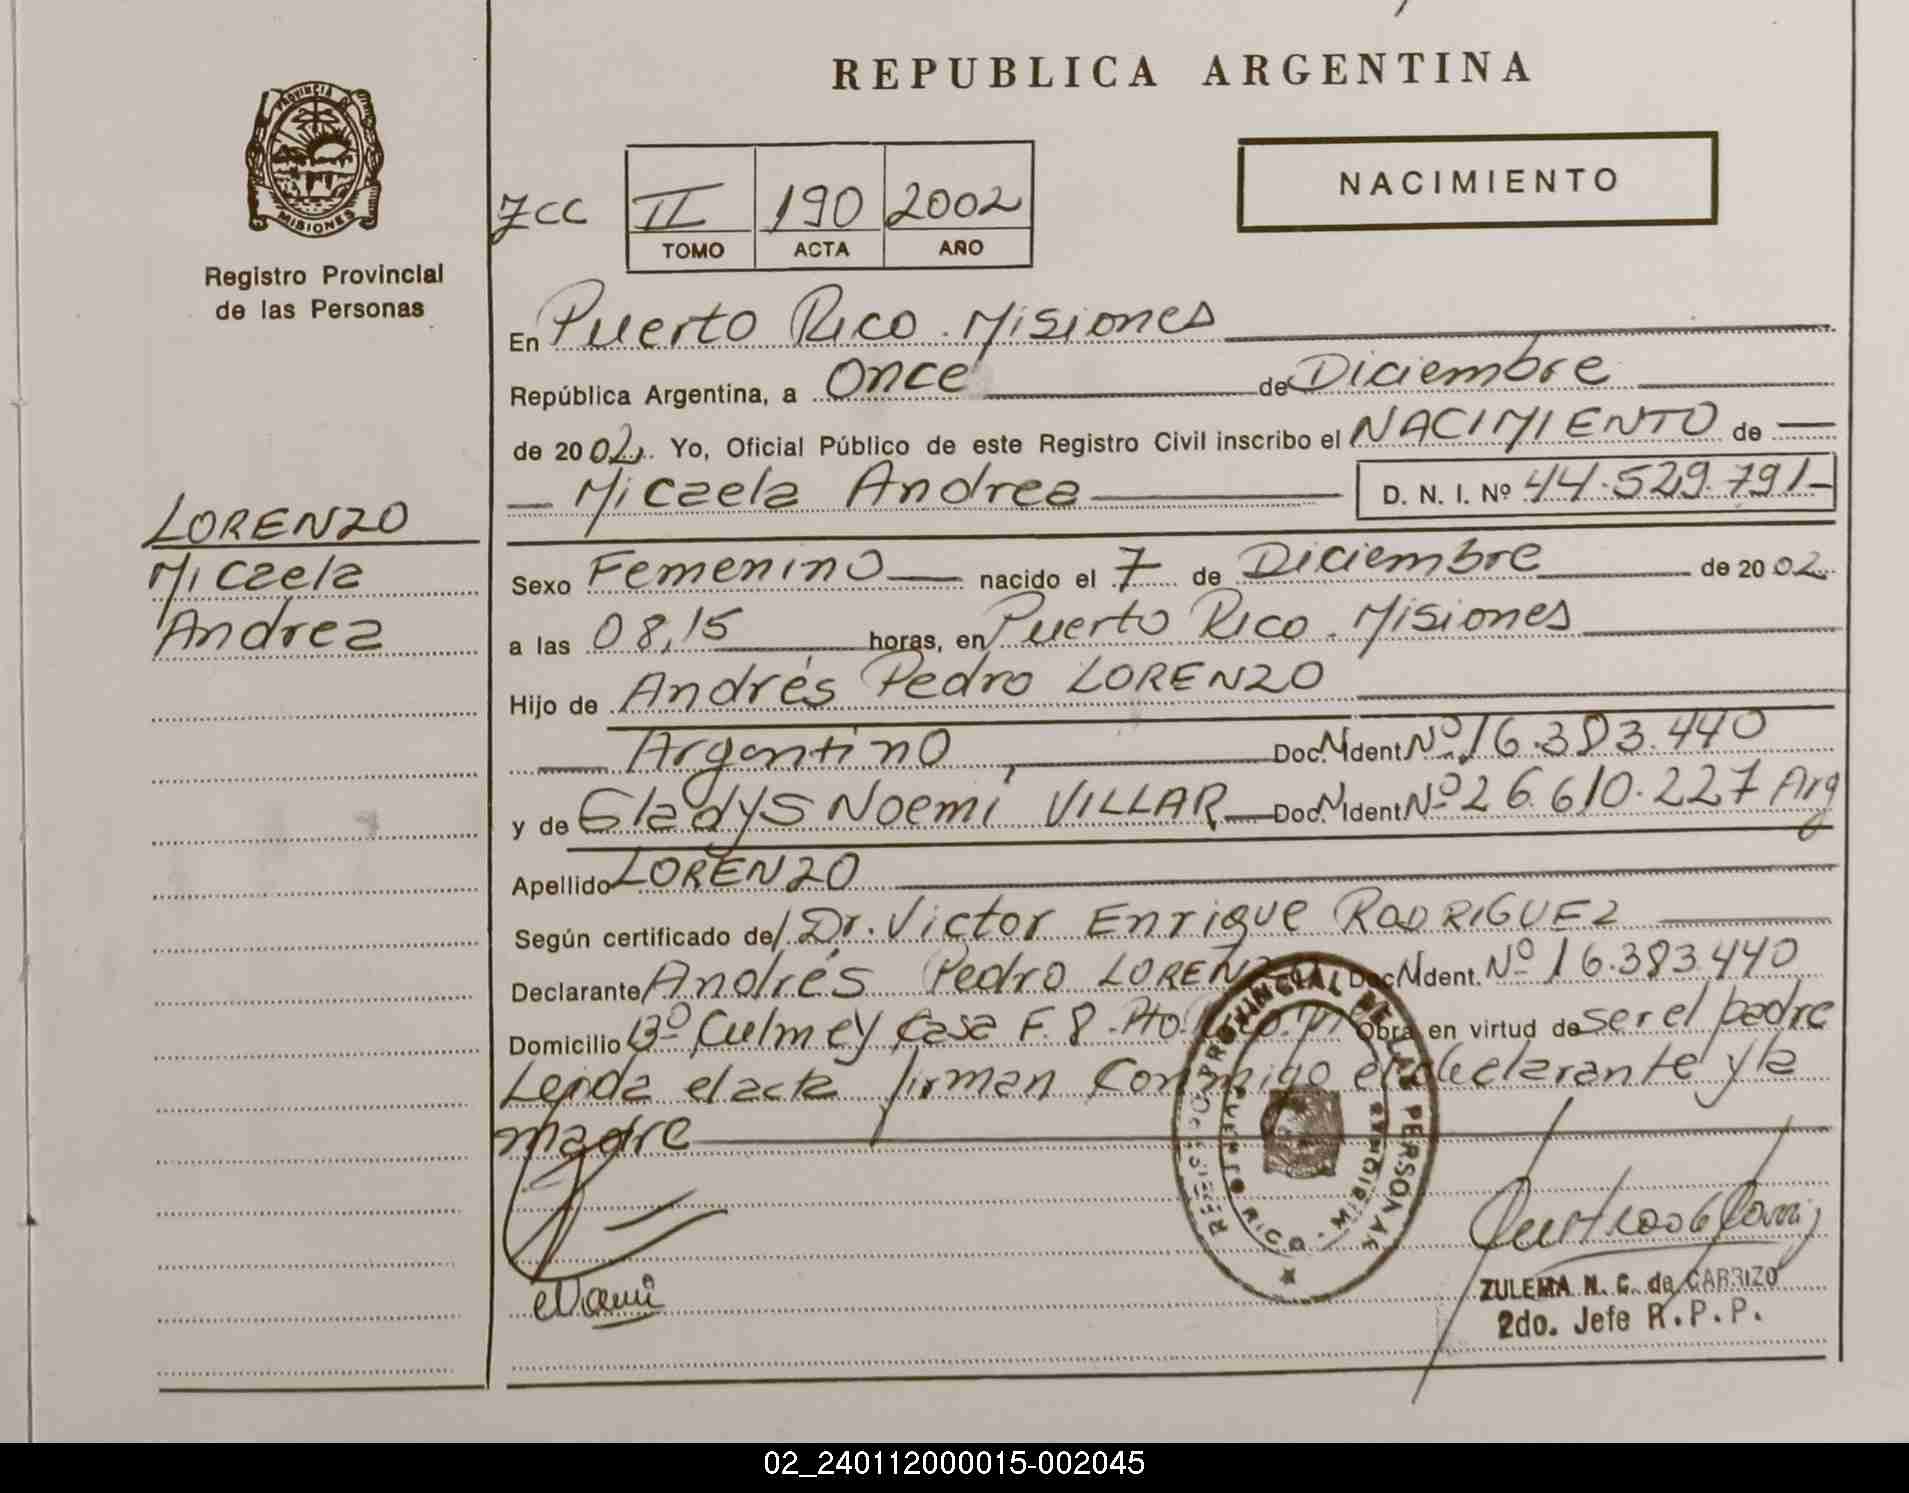 REPUBLICA ARGENTINA
PROVINCIA DE
MISIONES
Registro Provincial
de las Personas
NACIMIENTO
7CC II 190 2002
TOMO ACTA AÑO
En Puerto Rico. Misiones
República Argentina, a Once de Diciembre
de 2002. Yo, Oficial Público de este Registro Civil inscribo el NACIMIENTO de
Micaela Andrea D. N. I. Nº 44.529.791
LORENZO
Micaela
Andrea
Sexo Femenino nacido el 7 de Diciembre de 2002
a las 08,15 horas, en Puerto Rico. Misiones
Hijo de Andrés Pedro LORENZO
Argentino, Doc. N Ident Nº 16.383.440
y de Gladys Noemí VILLAR Doc. N Ident Nº 26.610.227 Arg
Apellido LORENZO
Según certificado del Dr. Victor Enrique RODRIGUEZ
Declarante Andrés Pedro LORENZO Doc N Ident. Nº 16.383.440
Domicilio Bº Culmey Casa F. 8. Pto. Rico. Obra en virtud de ser el padre
Leída el acta firman conmigo el declarante y la
madre
REGISTRO PROVINCIAL DE LAS PERSONAS
PUERTO RICO - MISIONES
ZULEMA N. C. de CARRIZO
2do. Jefe R.P.P.
02_240112000015-002045